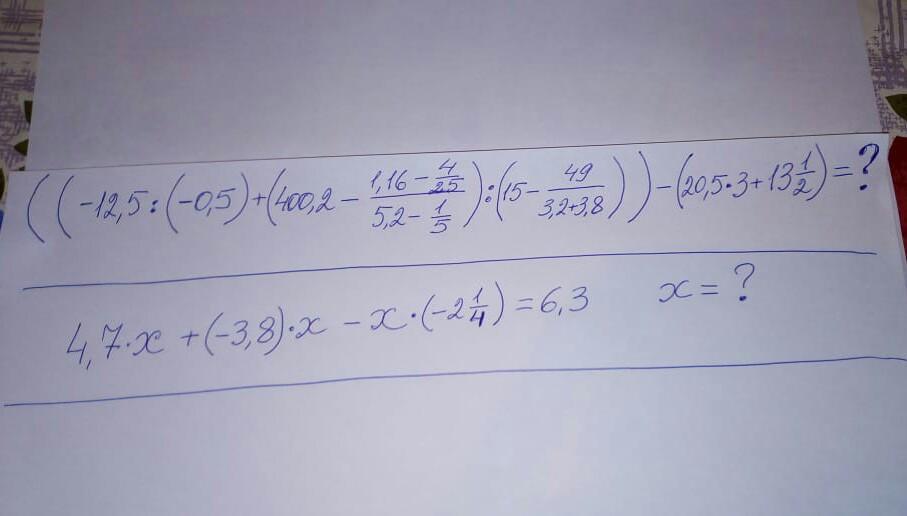 ((-12,5:(-0,5)+(400,2-\frac{1,16-\frac{4}{25}}{5,2-\frac{1}{5}}):(15-\frac{49}{3,2+3,8}))-(20,5·3+13\frac{1}{2})=?
4,7·x+(-3,8)·x-x·(-2\frac{1}{4})=6,3 x=?